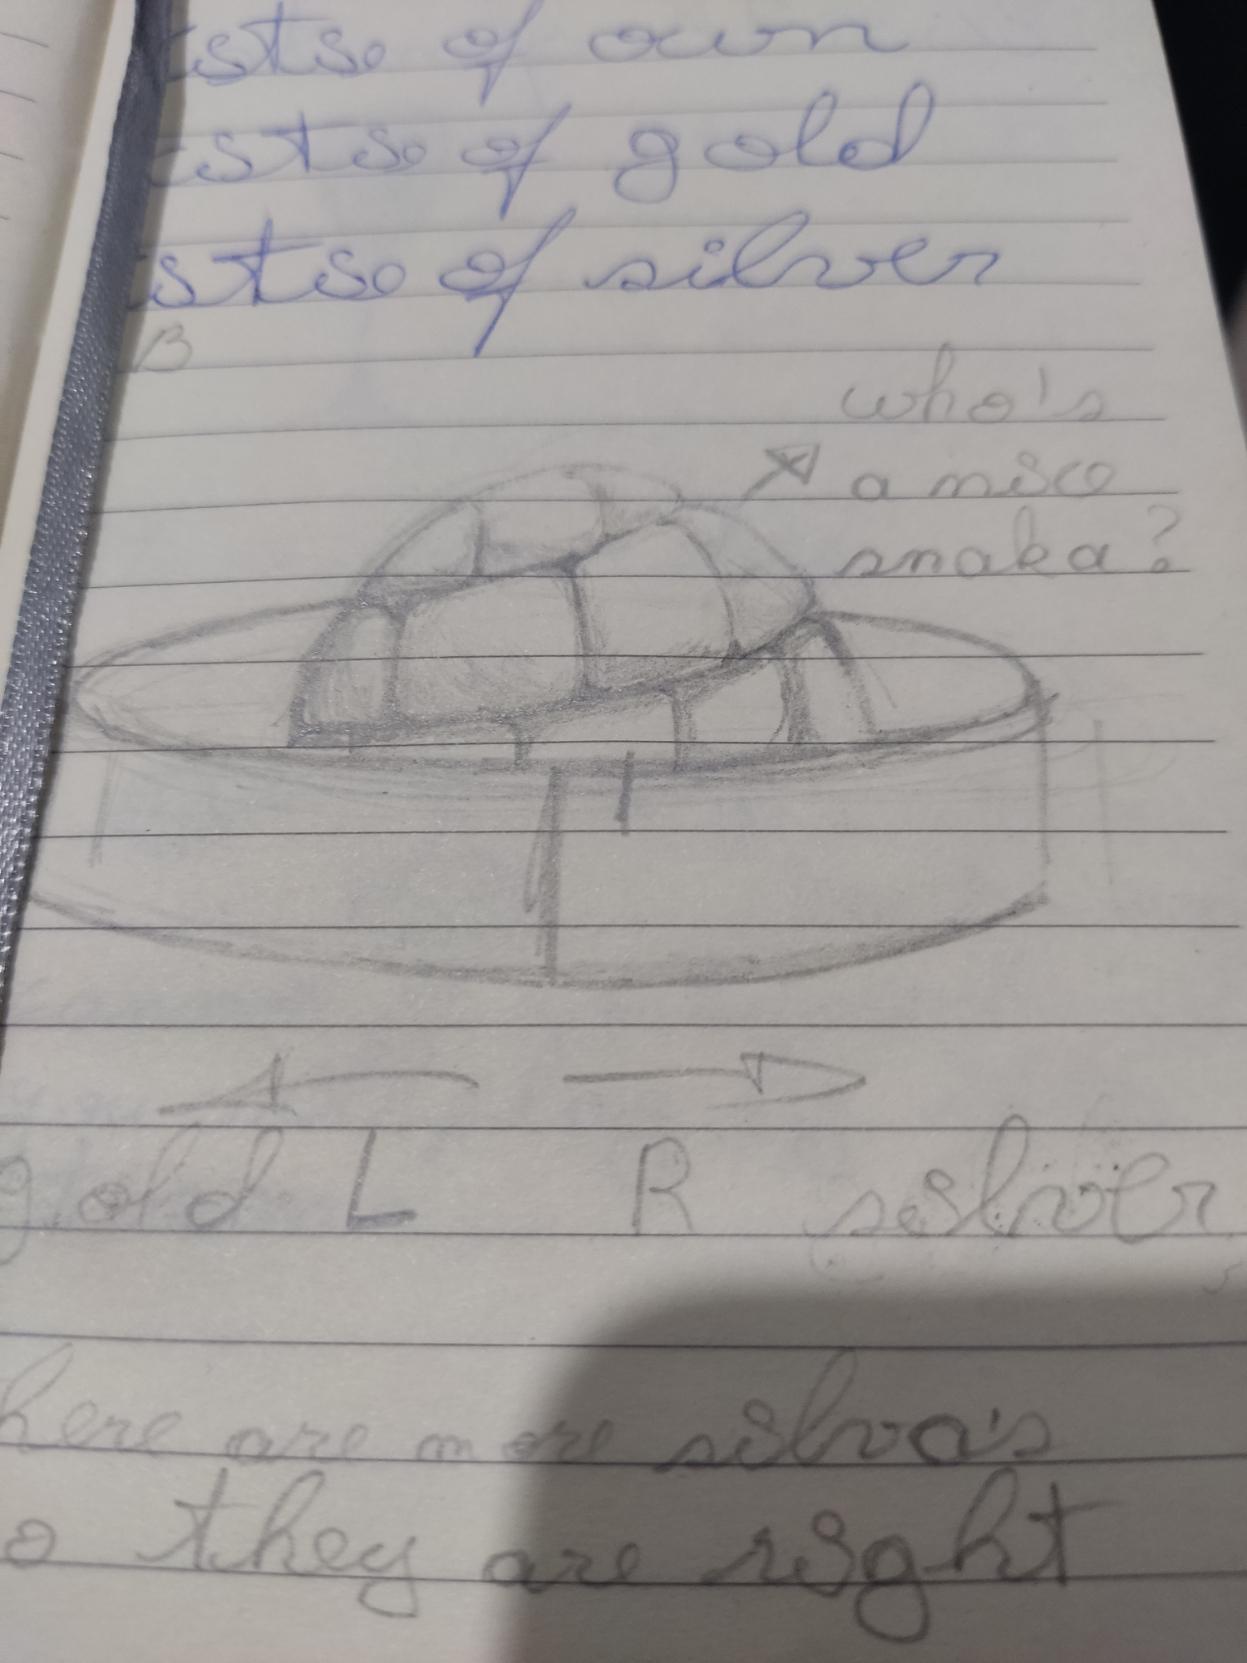 stso of own
stso of gold
stso of silver
B
who's
a nice
snaka?
gold L R silver
here are more silva's
o they are right